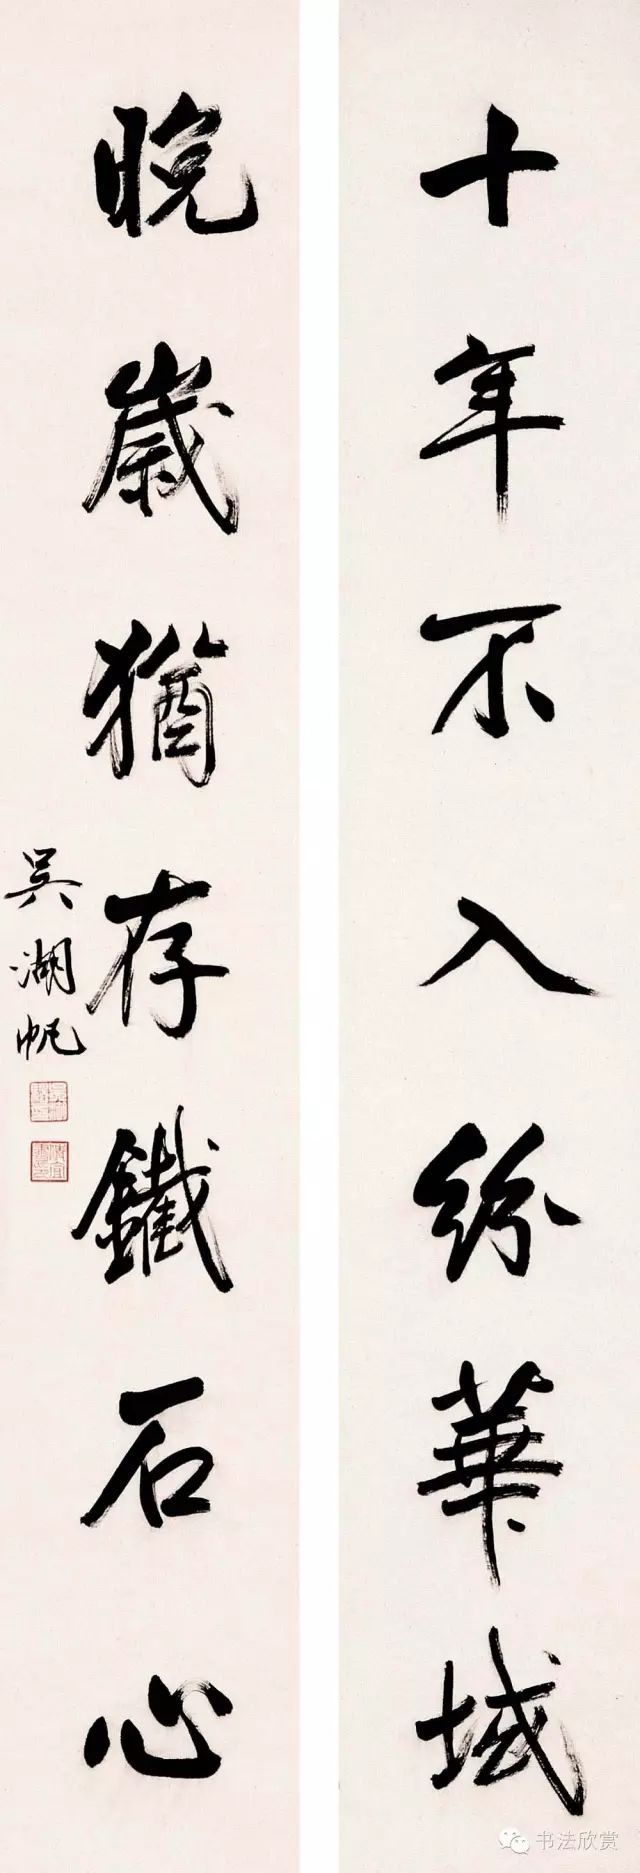 十年不入紛華域
晚歲猶存鐵石心
吳湖帆
书法欣赏